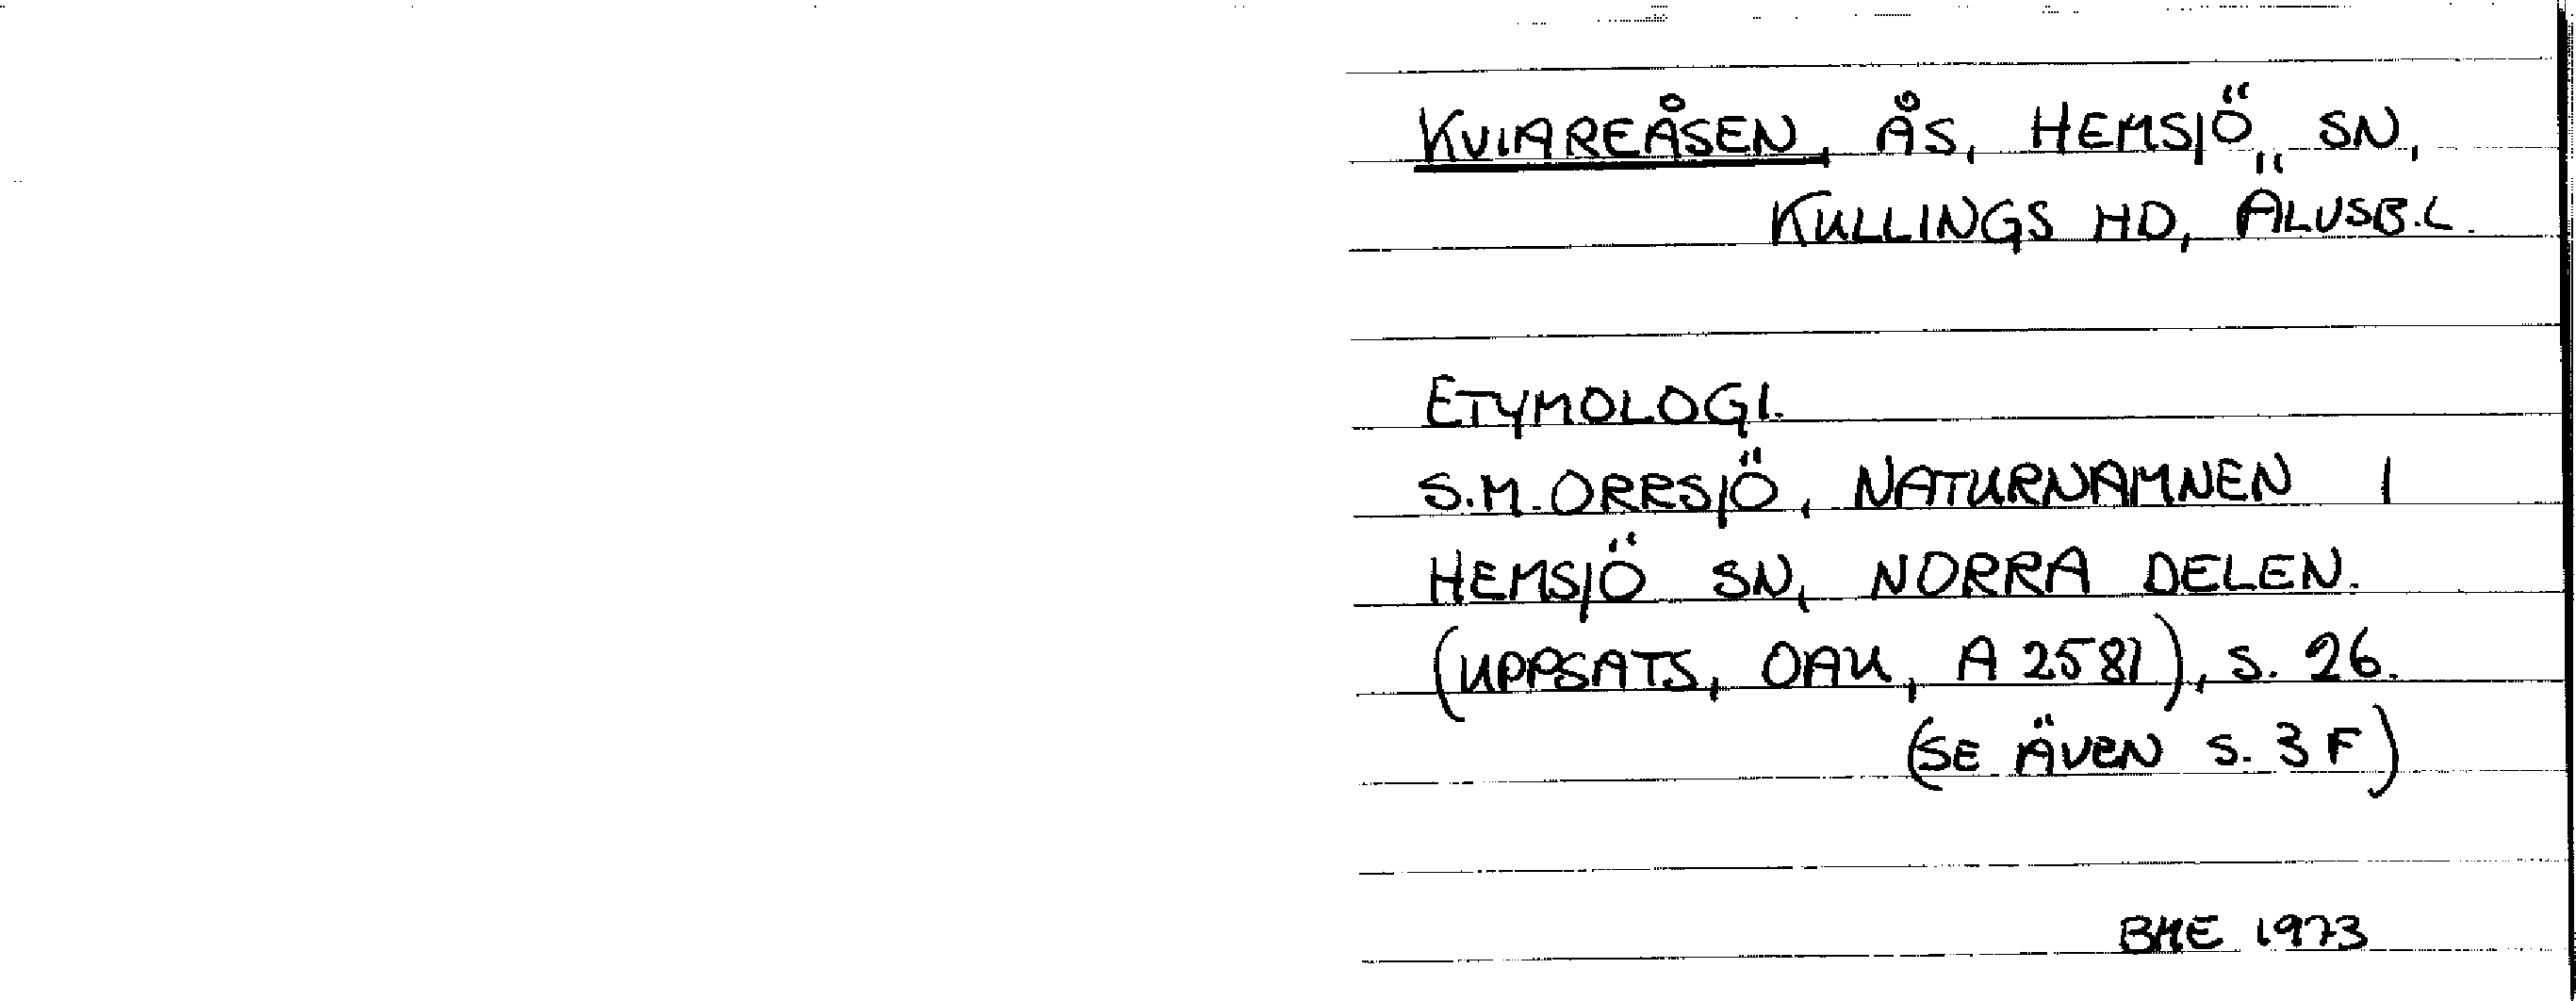 KVIAREÅSEN, ÅS, HEMSJÖ SN,
KULLINGS HD, ÄLVSB.L.
ETYMOLOGI.
S.M. ORRSJÖ, NATURNAMNEN I
HEMSJÖ SN, NORRA DELEN.
(UPPSATS, OAU, A 2581), S. 26.
(SE ÄVEN S. 3 F)
BME 1973